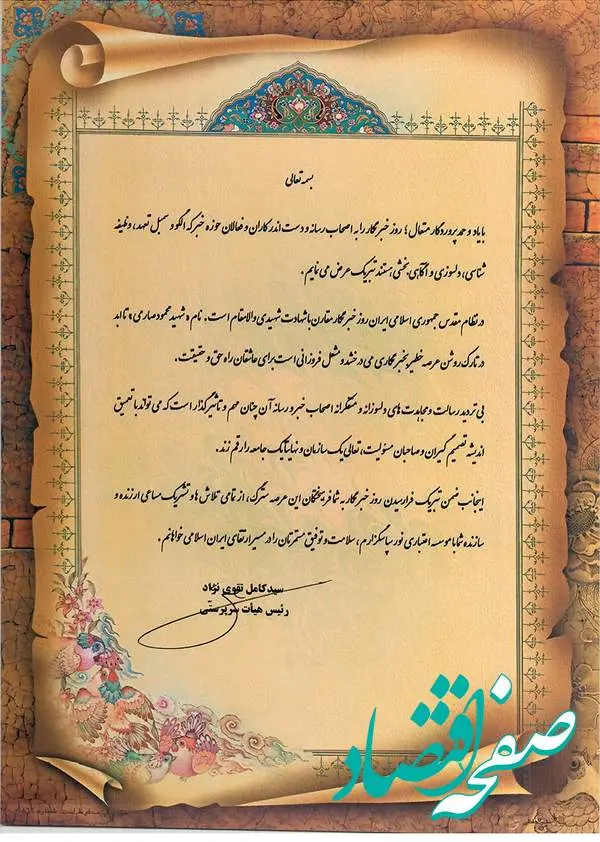 بسمه تعالی
با یاد و حمد پروردگار متعال؛ روز خبرنگار را به اصحاب رسانه و دست اندرکاران و فعالان حوزه خبر که الگو و سمبل تعهد، وظیفه
شناسی، دلسوزی و آگاهی بخشی هستند تبریک عرض می نمایم.
در نظام مقدس جمهوری اسلامی ایران روز خبرنگار مقارن با شهادت شهیدی والامقام است. نام «شهید محمود صارمی» تا ابد
در تارک روشن عرصه خطیر خبرنگاری می درخشد و مشعل فروزانی است برای عاشقان راه حق و حقیقت.
بی تردید رسالت و مجاهدت های دلسوزانه و متفکرانه اصحاب خبر و رسانه آن چنان مهم و تاثیرگذار است که می تواند با تعمیق
اندیشه تصمیم گیران و صاحبان مسئولیت، تعالی یک سازمان و نهایتا یک جامعه را رقم زند.
اینجانب ضمن تبریک فرارسیدن روز خبرنگار به شما فرهیختگان این عرصه سترگ، از تمامی تلاش ها و تشریک مساعی ارزنده و
سازنده شما با موسسه اعتباری نور سپاسگزارم، سلامت و توفیق مستمرتان را در مسیر ارتقای ایران اسلامی خواهانم.
سید کامل تقوی نژاد
رئیس هیات سرپرستی
صفحه اقتصاد